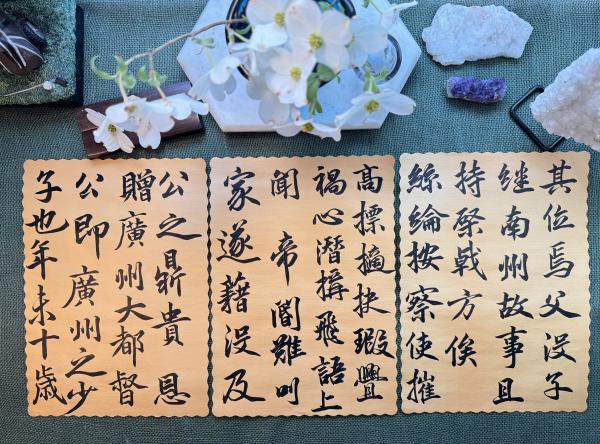 其位焉父没子
继南州故事且
持棨戟方俟
絲綸按察使摧
高摽擿抉瑕舋
禍心潛搆飛語上
聞帝閽難叫
家遂藉没及
公之鼎貴恩
贈廣州大都督
公即廣州之少
子也年未十歲